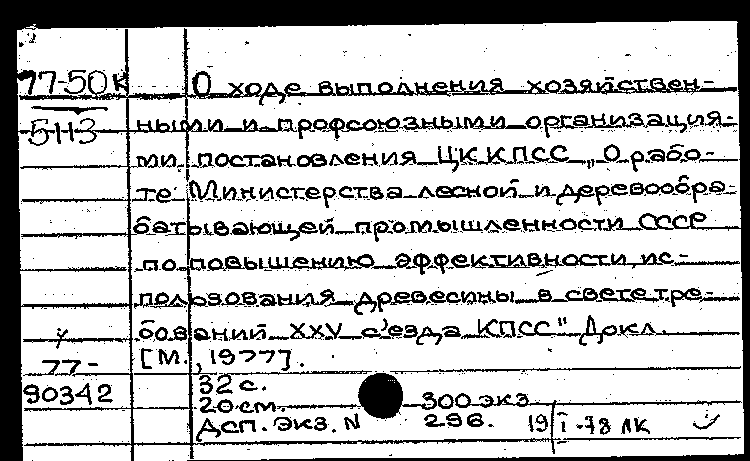 77-50к
5113
О ходе выполнения хозяйствен-
ными и профсоюзными организация-
ми постановления ЦК КПСС „О рабо-
те Министерства лесной и деревообра-
батывающей промышленности СССР
по повышению эффективности ис-
пользования древесины в свете тре-
бований XXV с'езда КПСС" Докл.
[М., 1977].
77-
90342
32 с.
20 см.
300 экз
ДСП. Экз. N 296.
19 I -78 ЛК